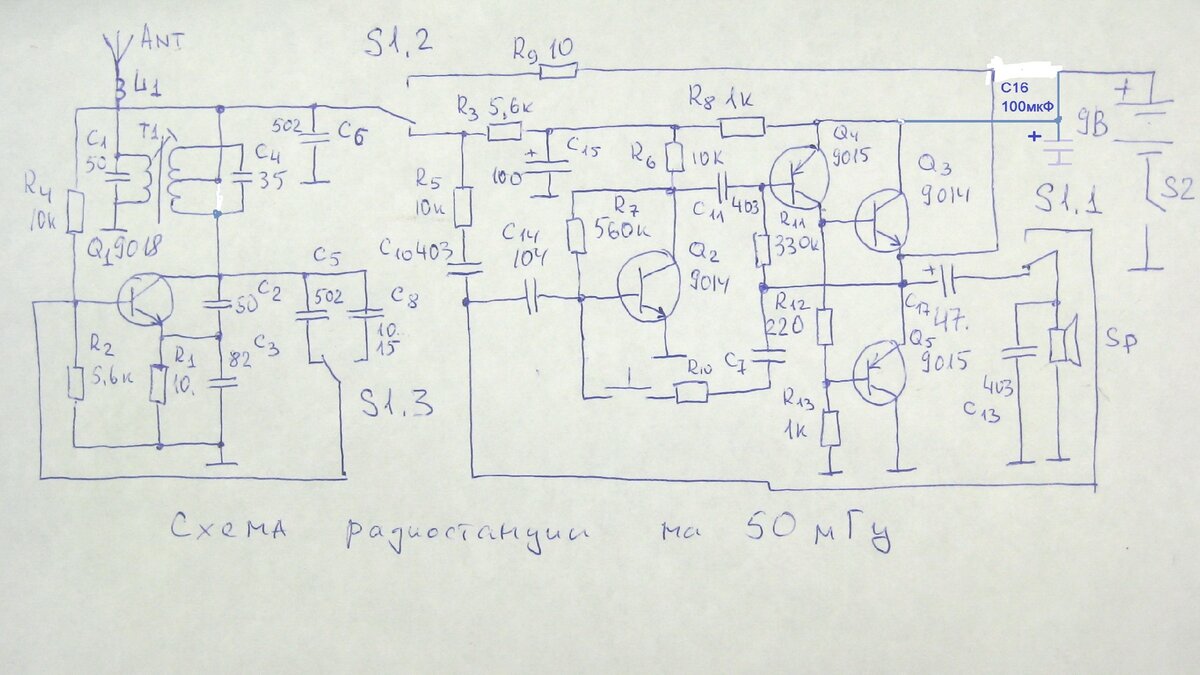 ANT
L1
S1.2
R9 10
C16
100мкФ
+
+
9В
S2
C1
50
T1
C4
35
502
C6
R3 5,6к
R8 1к
R4
10к
R5
10к
+
C15
100
R6
10к
Q4
9015
Q3
9014
S1.1
Q1 9018
R7
560к
C11
403
R11
330к
C10 403
C14
104
Q2
9014
C5
502
C2
50
C8
10.
15
C3
82
R2
5,6к
R1
10.
S1.3
R12
220
+
C17
47.
Q5
9015
Sp
C7
R10
R13
1к
403
C13
Схема радиостанции на 50 мГц